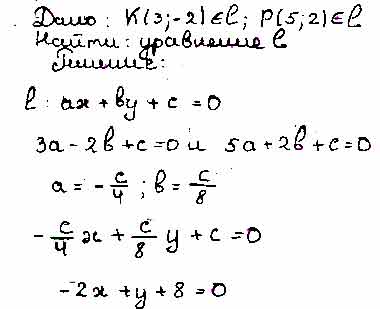 Дано: K(3;-2)∈ℓ; P(5;2)∈ℓ
Найти: уравнение ℓ
Решение:
ℓ: ax + by + c = 0
3a - 2b + c = 0 и 5a + 2b + c = 0
a = -c/4; b = c/8
-c/4 x + c/8 y + c = 0
-2x + y + 8 = 0